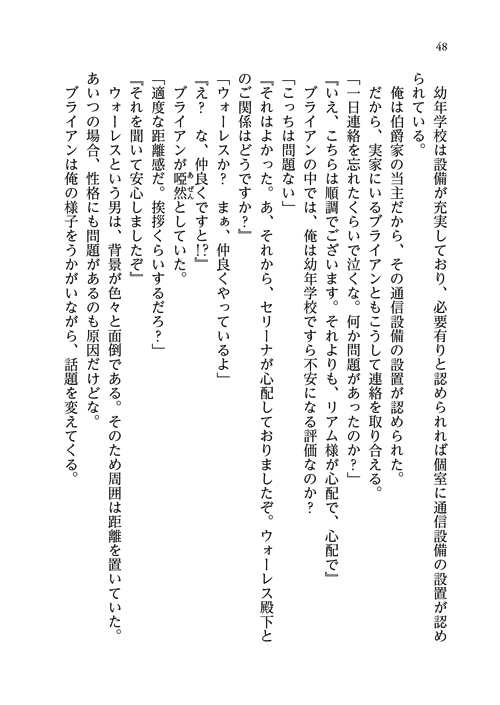 48
幼年学校は設備が充実しており、必要有りと認められれば個室に通信設備の設置が認め
られている。
俺は伯爵家の当主だから、その通信設備の設置が認められた。
だから、実家にいるブライアンともこうして連絡を取り合える。
「一日連絡を忘れたくらいで泣くな。何か問題があったのか？」
『いえ、こちらは順調でございます。それよりも、リアム様が心配で、心配で』
ブライアンの中では、俺は幼年学校ですら不安になる評価なのか？
「こっちは問題ない」
『それはよかった。あ、それから、セリーナが心配しておりましたぞ。ウォーレス殿下と
のご関係はどうですか？』
「ウォーレスか？　まぁ、仲良くやっているよ」
『え？　な、仲良くですと!?』
ブライアンが啞然としていた。
「適度な距離感だ。挨拶くらいするだろ？」
『それを聞いて安心しましたぞ』
ウォーレスという男は、背景が色々と面倒である。そのため周囲は距離を置いていた。
あいつの場合、性格にも問題があるのも原因だけどな。
ブライアンは俺の様子をうかがいながら、話題を変えてくる。